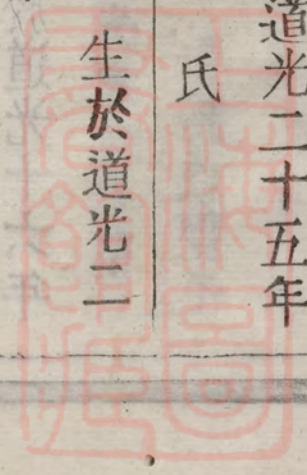 道光二十五年
氏
生於道光二